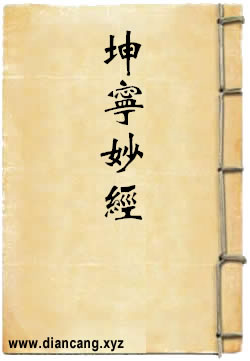 坤寧妙經
www.diancang.xyz